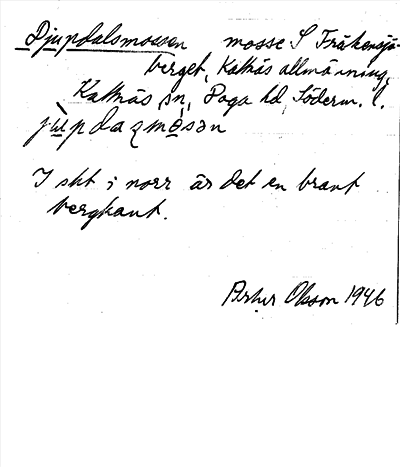 Djupdalsmossen mosse S Fräkensjö-
berget, Kattnäs allmänning,
Kattnäs sn, Daga hd, Söderm. l.
jùpdazmosən
I skt i norr är det en brant
bergkant.
Artur Olsson 1946